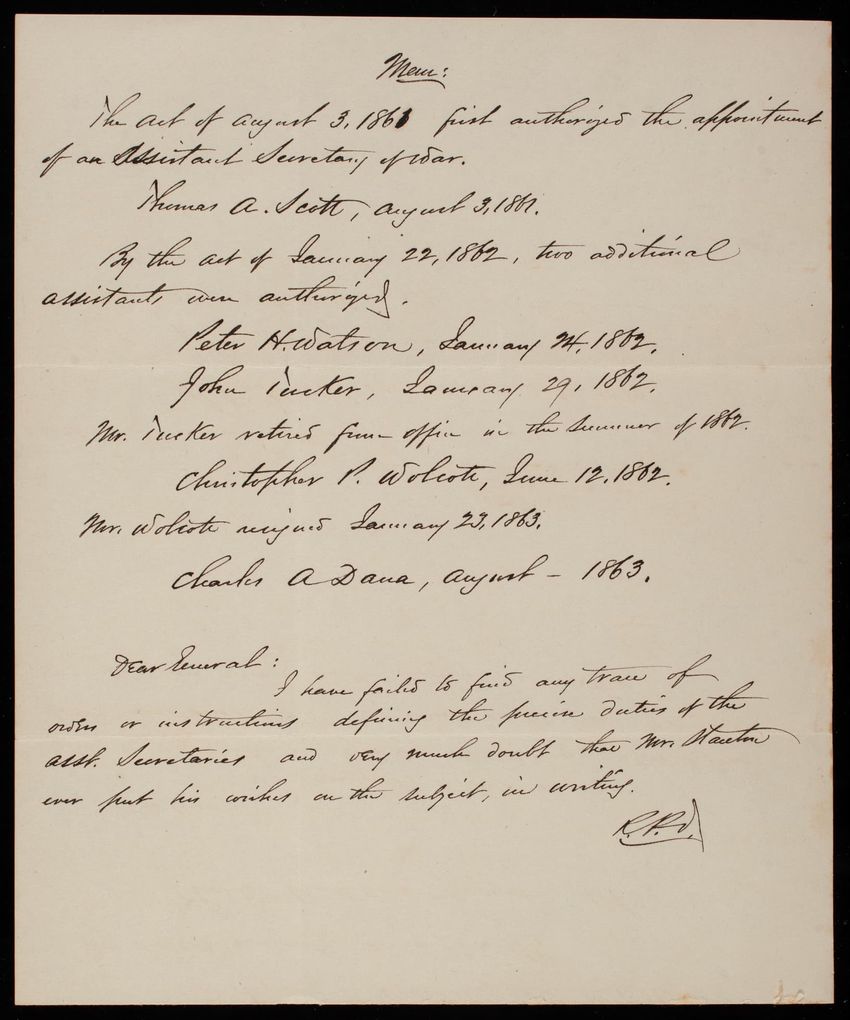 Mem:
The act of August 3, 1861 first authorized the appointment
of an Assistant Secretary of War.
Thomas A. Scott, August 3, 1861.
By the act of January 22, 1862, two additional
assistants were authorized.
Peter H. Watson, January 24, 1862.
John Tucker, January 29, 1862.
Mr. Tucker retired from office in the summer of 1862.
Christopher P. Wolcott, June 12, 1862.
Mr. Wolcott resigned January 23, 1863.
Charles A Dana, August – 1863.
Dear General:
I have failed to find any trace of
orders or instructions defining the precise duties of the
asst. Secretaries and very much doubt that Mr. Stanton
ever put his wishes on the subject, in writing.